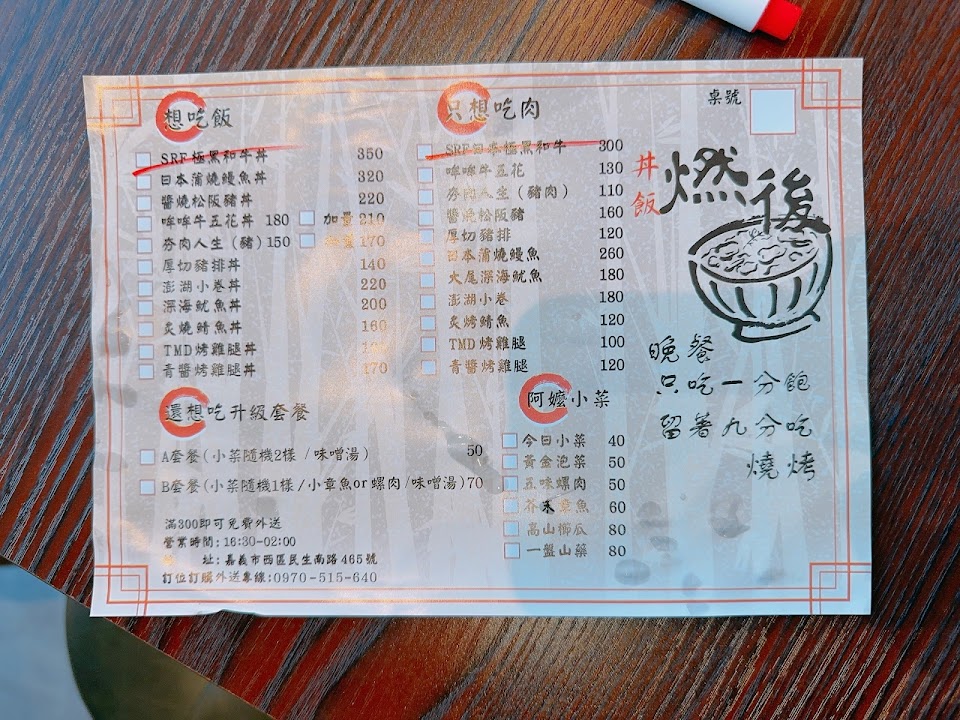 想吃飯
SRF極黑和牛丼 350
日本蒲燒鰻魚丼 320
醬燒松阪豬丼 220
哞哞牛五花丼 180 加量 210
夯肉人生(豬) 150 170
厚切豬排丼 140
澎湖小卷丼 220
深海魷魚丼 200
炙燒鯖魚丼 160
TMD烤雞腿丼
青醬烤雞腿丼 170
只想吃肉
SRF日本極黑和牛 300
哞哞牛五花 130
夯肉人生(豬肉) 110
醬燒松阪豬 160
厚切豬排 120
日本蒲燒鰻魚 260
大尾深海魷魚 180
澎湖小卷 180
炙烤鯖魚 120
TMD烤雞腿 100
青醬烤雞腿 120
還想吃升級套餐
A套餐(小菜隨機2樣/味噌湯) 50
B套餐(小菜隨機1樣/小章魚or螺肉/味噌湯)70
滿300即可免費外送
營業時間:16:30-02:00
址:嘉義市西區民生南路465號
訂位訂購外送專線:0970-515-640
阿嬤小菜
今日小菜 40
黃金泡菜 50
五味螺肉 50
芥末章魚 60
高山櫛瓜 80
一盤山藥 80
桌號
丼飯
燃後
晚餐
只吃一分飽
留著九分吃
燒烤